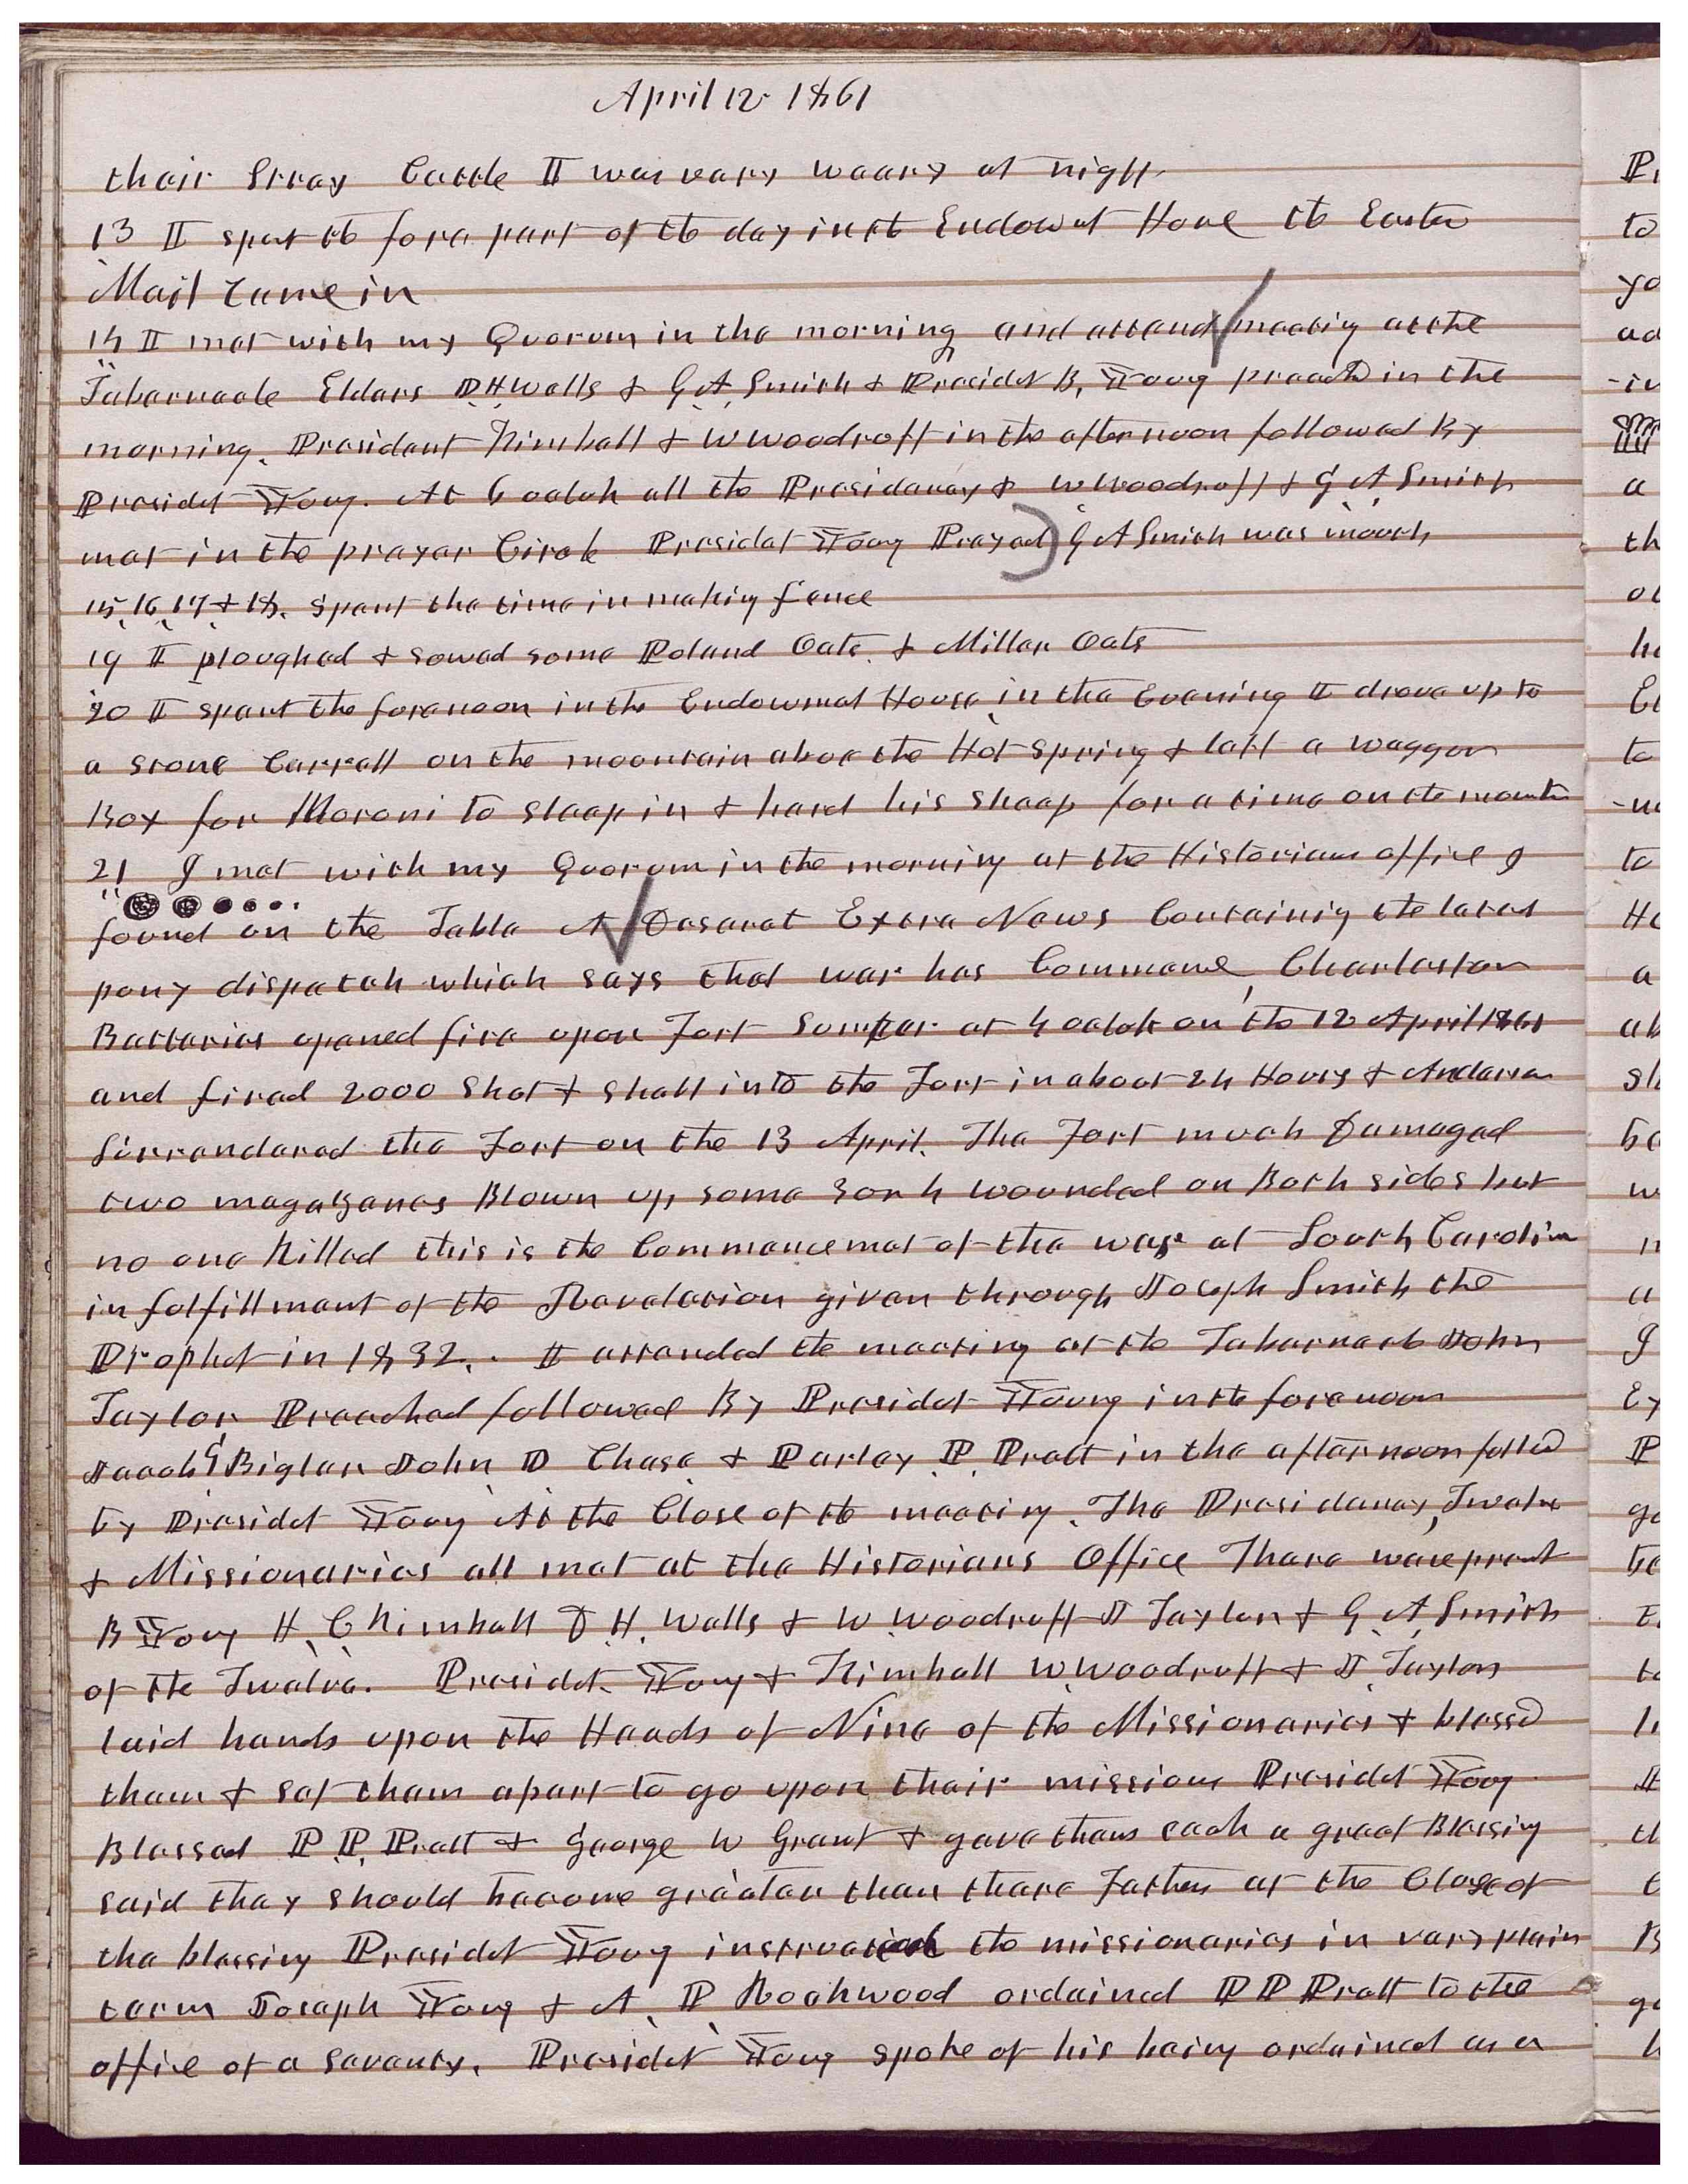 April 12 1861
their Stray Cattle I was very weary at night
13 I spent the fore part of the day in the Endowmt House the Eastern
Mail came in
14 I met with my Quorum in the morning and attend meeting at the
Tabernacle Elders D. H Wells & G. A. Smith & Presidet B. Young preachd in the
morning. President Kimball & W Woodruff in the afternoon followed By
Presidet Young. At 6 oclok all the Presidency & W Woodruff & G. A. Smith
met in the prayer Circle Presidet Young Prayed) G A Smith was mouth
15, 16, 17, & 18. Spent the time in making fence
19 I ploughed & sowed some Poland Oats. & Miller Oats
20 I spent the forenoon in the Endowmet House, in the Evening I drove up to
a stone Carrell on the mountain above the Hot Spring & left a waggon
Box for Moroni to sleep in & hard his sheep for a time on the mountin
21 I met with my Quorum in the morning at the Historians office I
found on the Table A Deseret Extra News Containing the latest
pony dispatch which says that war has Commence, Charleston
Batteries opened fire upon Fort Sumpter at 4 oclok on the 12 April 1861
and fired 2000 Shot & shell into the Fort in about 24 Hours & Anderson
Surrendered the Fort on the 13 April. The Fort much Damaged
two magazenes Blown up, some 3 or 4 wounded on Both sides but
no one Killed this is the Commencemet of the war at South Carolina
in fulfillment of the Revelation given through Joseph Smith the
Prophet in 1832. . I attended the meeting at the Tabernacle John
Taylor, Preached followed By Presidet Young in the forenoon
Jacob G Bigler John D Chase & Parley P. Pratt in the afternoon folled
by Presidet Young At the Close of the meeting. The Presidency, Twelve
& Missionaries all met at the Historians Office There were presnt
B Young H. C Kimball D. H. Wells & W Woodruff J Taylor & G. A. Smith
of the Twelve. Presidet. Young & Kimball W. Woodruff & J. Taylor
laid hands upon the Heads of Nine of the Missionaries & blessd
them & set them apart to go upon their missions Presidet Young
Blessed P. P. Pratt & George W Grant & gave them each a great Blessing
said they should become greater than there Fathers at the Close of
the blessing Presidet Young instructed the missionaries in very plain
term Joseph Young & A. P. Rockwood ordained P P Pratt to the
office of a seventy. Presidet Young spoke of his being ordained as a